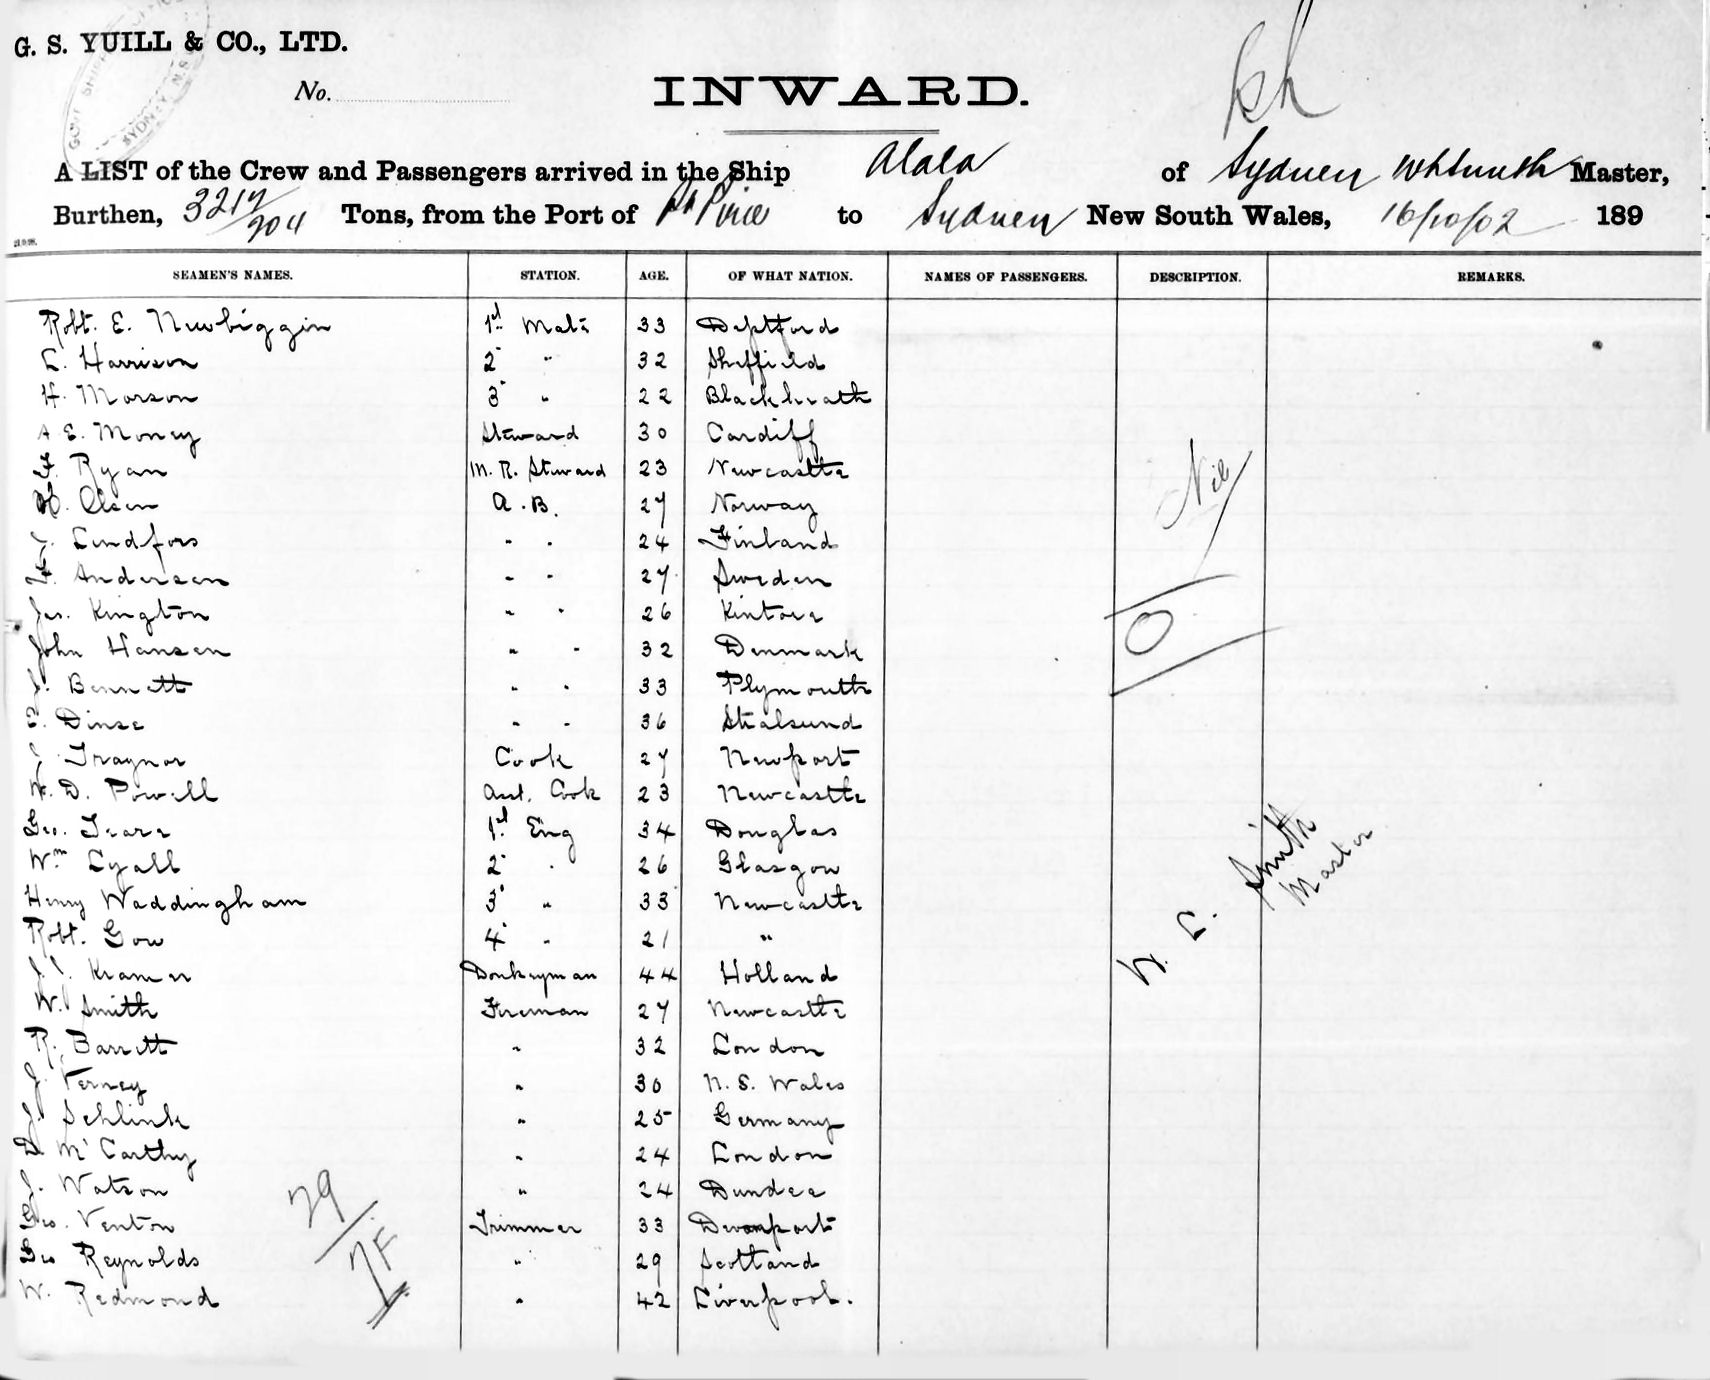 G. S. YUILL & CO., LTD.
No.
INWARD.
A LIST of the Crew and Passengers arrived in the Ship Alala of Sydney W L Smith Master,
Burthen, 3217/204 Tons, from the Port of Pt Pirie to Sydney New South Wales, 16/10/02 189
SEAMEN'S NAMES. STATION. AGE. OF WHAT NATION. NAMES OF PASSENGERS. DESCRIPTION. REMARKS.
Robt. E. Newbiggin 1st Mate 33 Deptford
L. Harrison 2" " 32 Sheffield
H. Morson 3" " 22 Blackheath
A E. Money Steward 30 Cardiff
F. Ryan M. R. Steward 23 Newcastle
H. Olsen A. B. 27 Norway
J. Lindfors " " 24 Finland
F. Andersen " " 27 Sweden
Jas. Kington " " 26 Kintore
John Hansen " " 32 Denmark
J. Bennett " " 33 Plymouth
E. Dinse " " 36 Stralsund
J. Traynor Cook 27 Newport
W. D. Powell Asst. Cook 23 Newcastle
Geo. Teare 1st Eng 34 Douglas
Wm Lyall 2" " 26 Glasgow
Henry Waddingham 3" " 33 Newcastle
Robt. Gow 4" " 21 "
J. J. Kramer Donkeyman 44 Holland
W. Smith Fireman 27 Newcastle
R. Barrett " 32 London
J. Verney " 30 N. S. Wales
J. Schlink " 25 Germany
D. McCarthy " 24 London
J. Watson " 24 Dundee
Geo. Venton Trimmer 33 Devonport
Geo Reynolds " 29 Scotland
W. Redmond " 42 Liverpool.
Nil
0
W. L. Smith
Master
29
7F